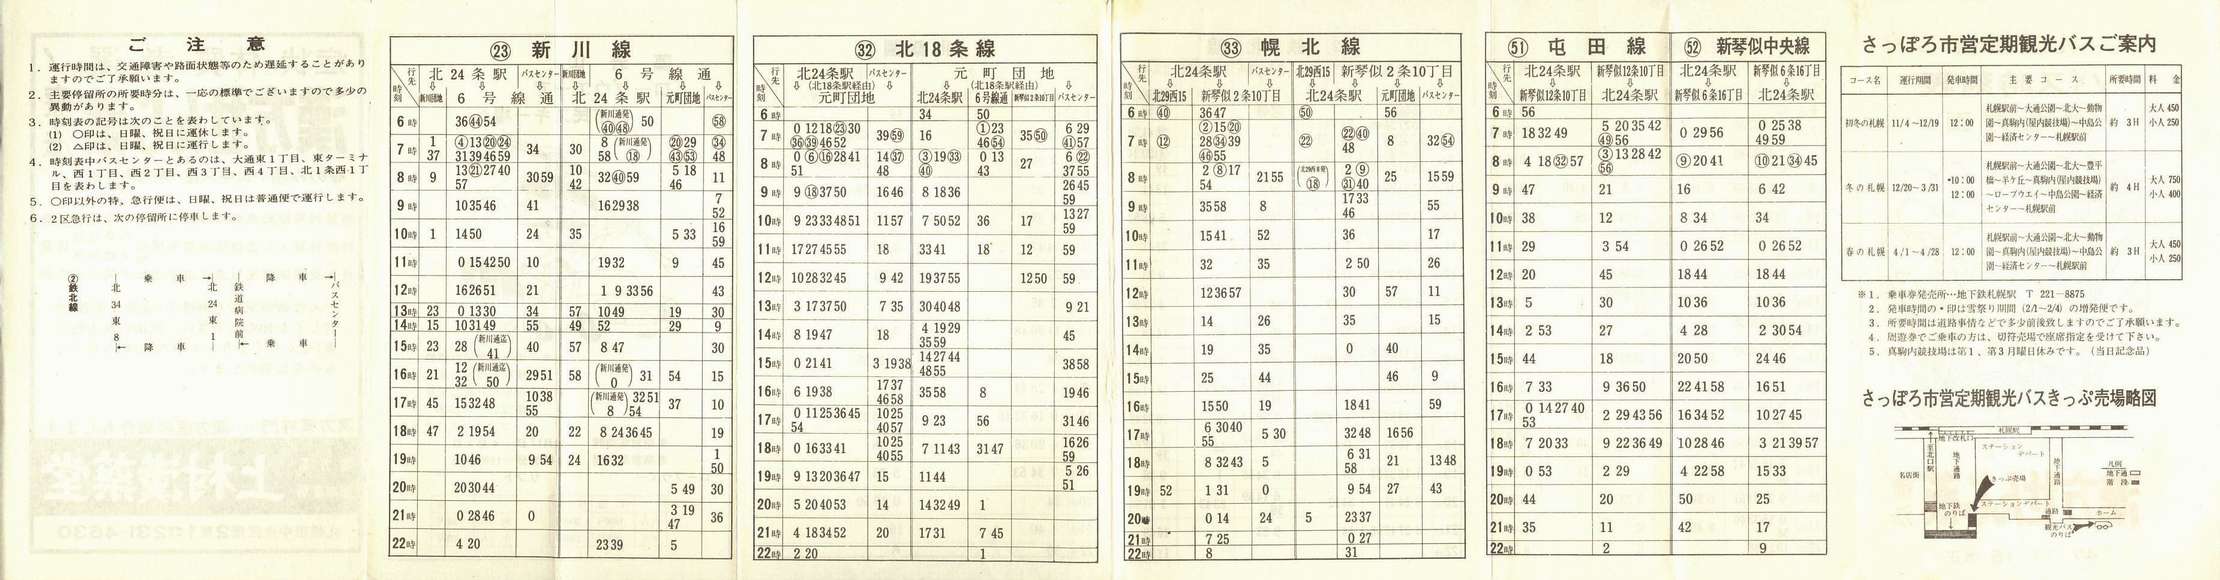 ご注意
1. 運行時間は、交通障害や路面状態等のため遅延することがあり
ますのでご了承願います。
2. 主要停留所の所要時分は、一応の標準でございますので多少の
異動があります。
3. 時刻表の記号は次のことを表わしています。
(1) 〇印は、日曜、祝日に運休します。
(2) △印は、日曜、祝日に運行します。
4. 時刻表中バスセンターとあるのは、大通東1丁目、東ターミナ
ル、西1丁目、西2丁目、西3丁目、西4丁目、北1条西1丁
目を表わします。
5. 〇印以外の特、急行便は、日曜、祝日は普通便で運行します。
6. 2区急行は、次の停留所に停車します。
②鉄北線
乗車→ 降車→
北34東8 北24東1 鉄道病院前 バスセンター
←降車 ←乗車
㉓ 新川線
行先 時刻
北24条駅 バスセンター 新川団地 6号線通
新川団地 6号線通 北24条駅 元町団地 バスセンター
6時 36㊹54 (新川通発 ㊵㊽) 50 58
7時 1 37 ④13⑳24 31394659 34 30 8 58 (新川通発 ⑱) ⑳29 ㊸53 ㉞ 48
8時 9 13㉑2740 57 3059 10 42 32㊵59 5 18 46 11
9時 103546 41 162938 7 52
10時 1 1450 24 35 5 33 16 59
11時 0 154250 10 1932 9 45
12時 162651 21 1 9 3356 43
13時 23 0 1330 34 57 1049 19 30
14時 15 103149 55 49 52 29 9
15時 23 28 (新川通迄 41) 40 57 8 47 30
16時 21 12 32 (新川通迄 50) 2951 58 (新川通発 0) 31 54 15
17時 45 153248 1038 55 (新川通発 8) 3251 54 37 10
18時 47 2 1954 20 22 8 243645 19
19時 1046 9 54 24 1632 1 50
20時 203044 5 49 30
21時 0 2846 0 3 19 47 36
22時 4 20 2339 5
㉜ 北18条線
行先 時刻
北24条駅 (北18条駅経由) 元町団地 バスセンター
元町団地 (北18条駅経由) 北24条駅 6号線通 新琴似2条10丁目 バスセンター
6時 34 50
7時 0 1218㉓30 ㊱㊴4652 39 59 16 ①23 4654 35㊿ 6 29 ㊶57
8時 0 ⑥⑯2841 51 14㊲ 48 ③19㉝ ㊵ 0 13 43 27 6 ㉒ 3755
9時 9 ⑱3750 1646 8 1836 2645 59
10時 9 23334851 1157 7 5052 36 17 1327 59
11時 17274555 18 3341 18 12 59
12時 10283245 9 42 193755 1250 59
13時 3 173750 7 35 304048 9 21
14時 8 1947 18 4 1929 3559 45
15時 0 2141 3 1938 142744 4855 3858
16時 6 1938 1737 4658 3558 8 1946
17時 0 11253645 54 1025 4057 9 23 56 3146
18時 0 163341 1025 4055 7 1143 3147 1626 59
19時 9 13203647 15 1144 5 26 51
20時 5 204053 14 143249 1
21時 4 183452 20 1731 7 45
22時 2 20 1
㉝ 幌北線
行先 時刻
北24条駅 バスセンター 北29西15 新琴似2条10丁目
北29西15 新琴似2条10丁目 北24条駅 元町団地 バスセンター
6時 ㊵ 3647 ㊿ 56
7時 ⑫ ②15⑳ 28㉞39 ㊻55 ㉒ ㉒㊵ 48 8 3254
8時 2 ⑧17 54 2155 (北29西15発 ⑱) 2 ⑨ ㉛40 25 1559
9時 3558 8 1733 46 55
10時 1541 52 36 17
11時 32 35 2 50 26
12時 123657 30 57 11
13時 14 26 35 15
14時 19 35 0 40
15時 25 44 46 9
16時 1550 19 1841 59
17時 6 3040 55 5 30 3248 1656
18時 8 3243 5 6 31 58 21 1348
19時 52 1 31 0 9 54 27 43
20時 0 14 24 5 2337
21時 7 25 0 27
22時 8 31
51 屯田線 52 新琴似中央線
行先 時刻
北24条駅 新琴似12条10丁目 北24条駅 新琴似6条16丁目
新琴似12条10丁目 北24条駅 新琴似6条16丁目 北24条駅
6時 56
7時 183249 5 203542 ㊾56 0 2956 0 2538 4959
8時 4 18㉜57 ③132842 56 ⑨2041 ⑩21㉞45
9時 47 21 16 6 42
10時 38 12 8 34 34
11時 29 3 54 0 2652 0 2652
12時 20 45 1844 1844
13時 5 30 1036 1036
14時 2 53 27 4 28 2 3054
15時 44 18 2050 2446
16時 7 33 9 3650 224158 1651
17時 0 142740 53 2 294356 163452 102745
18時 7 2033 9 223649 102846 3 213957
19時 0 53 2 29 4 2258 1533
20時 44 20 50 25
21時 35 11 42 17
22時 2 9
さっぽろ市営定期観光バスご案内
コース名 運行期間 発車時間 主要コース 所要時間 料金
初冬の札幌 11/4~12/19 12:00 札幌駅前~大通公園~北大~動物
園~真駒内(屋内競技場)~中島公
園~経済センター~札幌駅前 約3H 大人450 小人250
冬の札幌 12/20~3/31 *10:00 12:00 札幌駅前~大通公園~北大~豊平
橋~羊ケ丘~真駒内(屋内競技場)
~ロープウエイ~中島公園~経済
センター~札幌駅前 約4H 大人750 小人400
春の札幌 4/1~4/28 12:00 札幌駅前~大通公園~北大~動物
園~真駒内(屋内競技場)~中島公
園~経済センター~札幌駅前 約3H 大人450 小人250
※1. 乗車券発売所…地下鉄札幌駅 T 221-8875
2. 発車時間の*印は雪祭り期間(2/1~2/4)の増発便です。
3. 所要時間は道路事情などで多少前後致しますのでご了承願います。
4. 周遊券でご乗車の方は、切符売場で座席指定を受けて下さい。
5. 真駒内競技場は第1、第3月曜日休みです。(当日記念品)
さっぽろ市営定期観光バスきっぷ売場略図
札幌駅
地下改札口
至北口駅
地下通路
ステーションデパート
地下通路
名店街
凡例
地下通
階段
きっぷ売場
ステーションデパート
地下鉄のりば
通路
ホーム
観光バスのりば